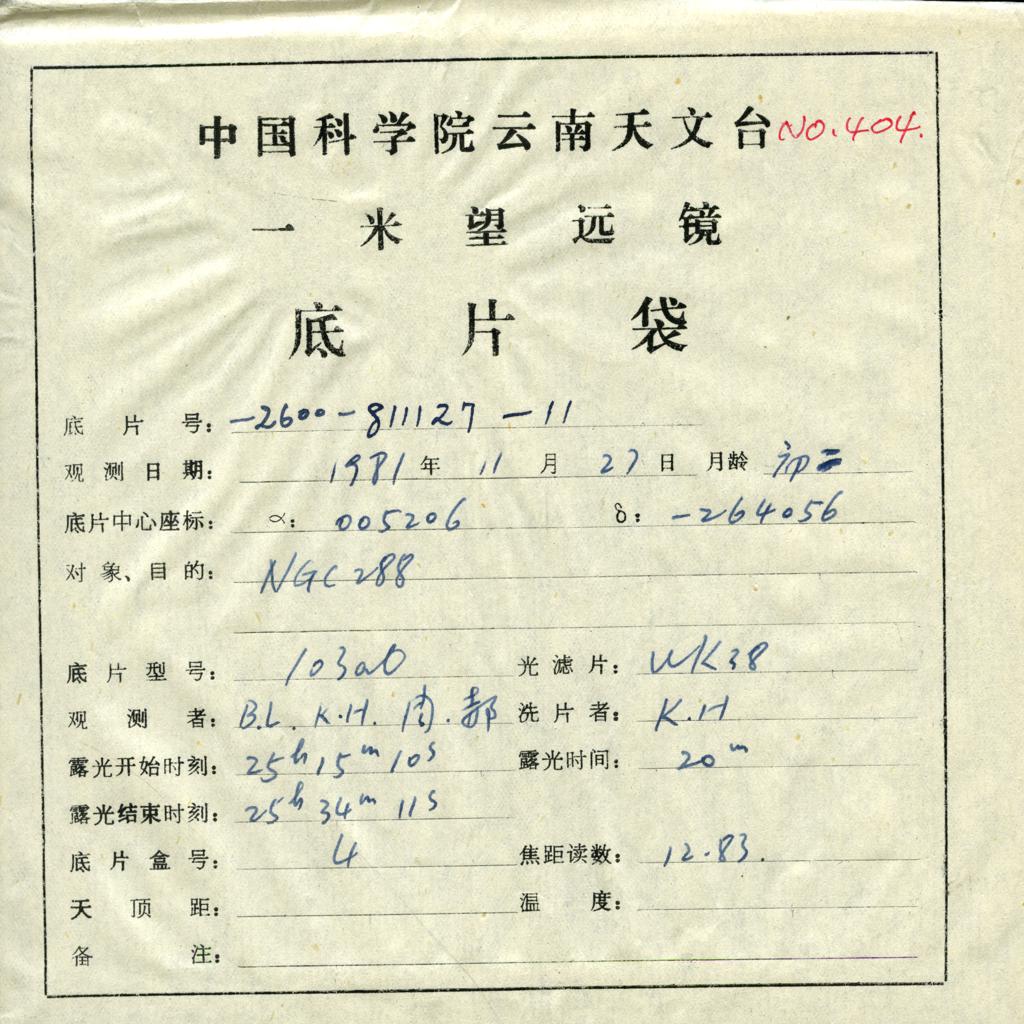 中国科学院云南天文台 NO.404.
一米望远镜
底片袋
底片号: -2600-811127-11
观测日期: 1981年11月27日 月龄 初二
底片中心座标: α: 005206 δ: -264056
对象、目的: NGC288
底片型号: 103aO 光滤片: UK38
观测者: B.L. K.H. 周. 郝 洗片者: K.H
露光开始时刻: 25h15m10s 露光时间: 20m
露光结束时刻: 25h34m11s
底片盒号: 4 焦距读数: 12.83.
天顶距: 温度:
备注: